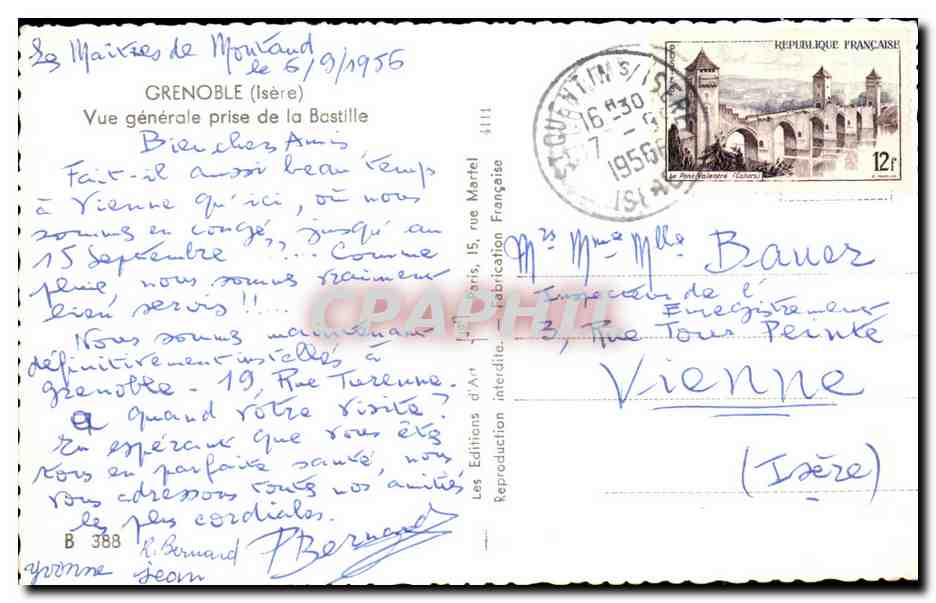 Les Maîtres de Montaud
le 6/9/1956
GRENOBLE (Isère)
Vue générale prise de la Bastille
Bien chers Amis,
Fait-il aussi beau temps
à Vienne qu'ici, où nous
sommes en congé jusqu'au
15 Septembre ??.... Comme
pluie, nous sommes vraiment
bien servis !!..
Nous sommes maintenant
définitivement installés à
Grenoble - 19, Rue Turenne.
A quand votre visite ?
En espérant que vous êtes
tous en parfaite santé, nous
vous adressons toutes nos amitiés
les plus cordiales.
B 388
R. Bernard
P Bernard
Yvonne
Jean
4111
Les Editions d'Art Paris, 15, rue Martel
Reproduction interdite. - Fabrication Française
CPAPHIL
ST QUENTIN S/ISERE
16 H 30
7 - 9
1956
ISERE
REPUBLIQUE FRANÇAISE
12f
Le Pont Valentré (Cahors)
Mrs Mme Mlle Bauer
Inspecteur de l'
Enregistrement
3, Rue Tour Peinte
Vienne
(Isère)